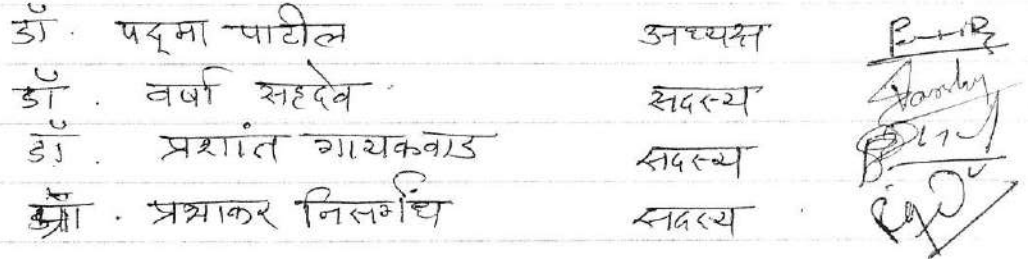 डॉ. पद्मा पाटील अध्यक्ष
डॉ. वर्षा सहदेव सदस्य
डॉ. प्रशांत गायकवाड सदस्य
प्रा. प्रभाकर निसर्गंध सदस्य